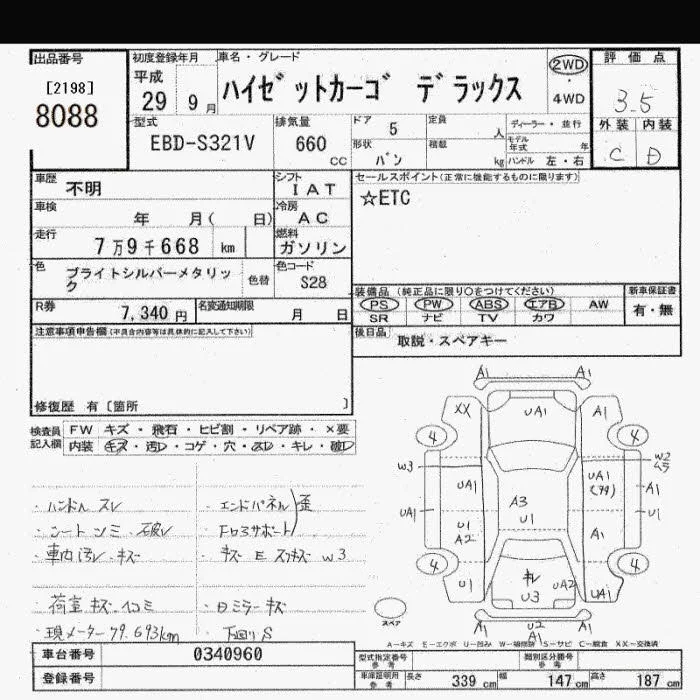 出品番号
[2198]
8088
初度登録年月
平成
29 9月
車名・グレード
ハイゼットカーゴ デラックス
2WD
・
4WD
評価点
3.5
外装 内装
C D
型式
EBD-S321V
排気量
660
CC
ドア
5
定員
人
形状
バン
積載
kg
ディーラー・並行
モデル年式 年
ハンドル 左・右
車歴
不明
シフト
IAT
セールスポイント(正常に機能するものに限ります)
☆ETC
車検
年 月( 日)
冷房
AC
走行
7万9千668 km
燃料
ガソリン
色
ブライトシルバーメタリック
色替
色コード
S28
R券
7,340円
名変通知期限
月 日
装備品 (純正品に限り○をつけてください)
PS PW ABS エアB AW
SR ナビ TV カワ
新車保証書
有・無
後日品
取説・スペアキー
注意事項申告欄(不具合内容等は具体的に記入して下さい)
修復歴 有〔箇所 〕
検査員記入欄
FW キズ・飛石・ヒビ割・リペア跡・×要
内装 キズ・汚レ・コゲ・穴・スレ・キレ・破レ
・ハンドル スレ
・シートシミ・破レ
・車内汚レ・キズ
・荷室 キズ・凹コミ
・現メーター79.693km
・エンドパネル 歪
・Fロアサポート
・キズ E スリキズ W3
・日ミラーキズ
・下回りS
A1 A1
XX UA1 A1
4 4
W3 W2
ムラ
UA1 UA1 A1
UA1 A3 U1
U1 U1
A2 A1
4 4
U1 キレ U3 UA2 UA1
A1 U2 A1
A1
スペア
A−キズ E−エクボ U−凹み W−補修跡 S−サビ C−腐食 XX−交換済
車台番号
0340960
登録番号
型式指定番号
参考
類別区分番号
参考
車庫証明用
参考
長さ 339 cm 幅 147 cm 高さ 187 cm